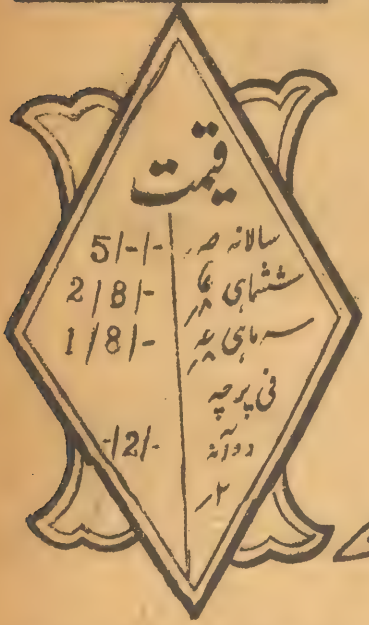 قیمت
سالانہ صہ 5/-/-
ششماہی 2/8/-
سہ ماہی 1/8/-
فی پرچہ
دو آنہ -/2/-
۲؍